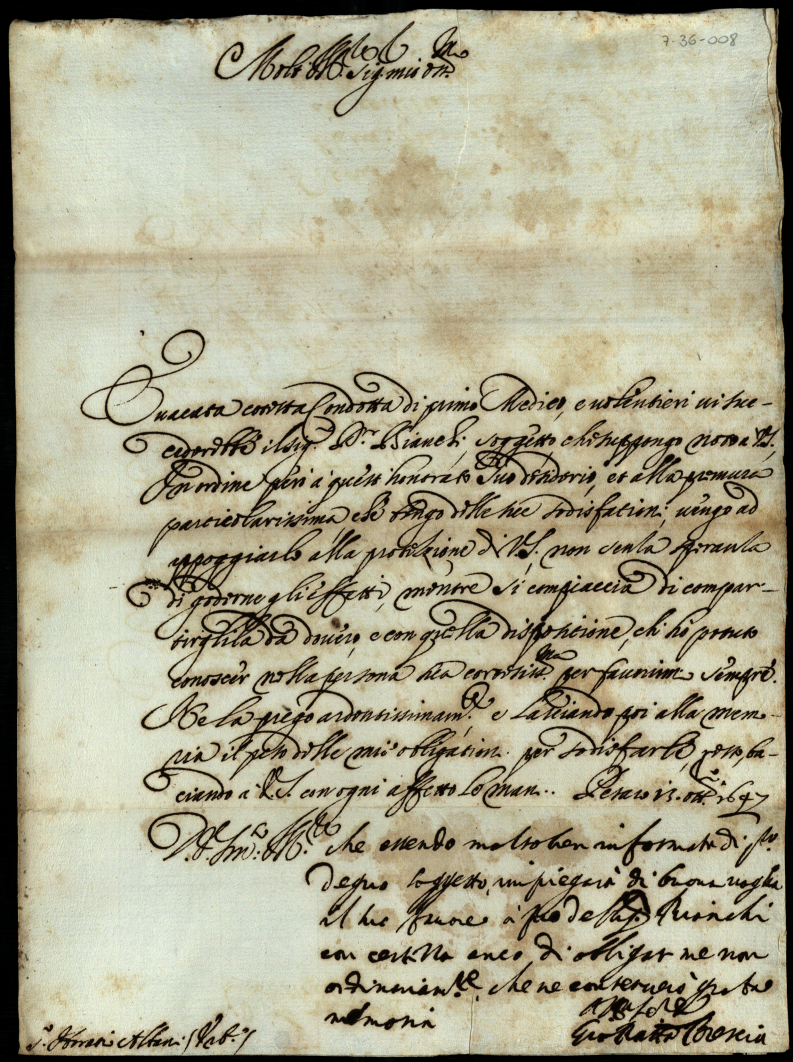 7-36-008
Molt Ill.re Sig.r mio oss.mo
È vacata cotesta Condotta di primo Medico, e volentieri vi suc-
cederebbe il Sig.r D.r Bianchi, soggetto, che suppongo noto a V.S.
In ordine però a questo honorato suo desiderio, et alla premura
particolarissima che tengo delle sue sodisfationi, vengo ad
appoggiarlo alla protezione di V.S. non senza speranza
di goderne gli effetti, mentre si compiaccia di compar-
tirglila da dovero, e con quella dispositione, che ho potuto
conoscer nella persona sua cortesiss.ma per favorirmi sempre.
Ne la prego ardentissimam.te e lasciando poi alla mem-
ria il peso delle mie obligationi per sodisfarle, resto, ba-
ciando a V.S. con ogni affetto le mani. Pesaro 13 ott.e 1647
D. V.S. m. Ill.re che essendo molto ben informata di s.to
degno soggetto, impiegarà di buona voglia
il suo favore a pro del Sig.r Bianchi
con certezza anco di obligar me non
ordinariam.te, che ne conserverò grata
memoria
Gio Batta Brescia
S.r Horatio Albani Urb.o